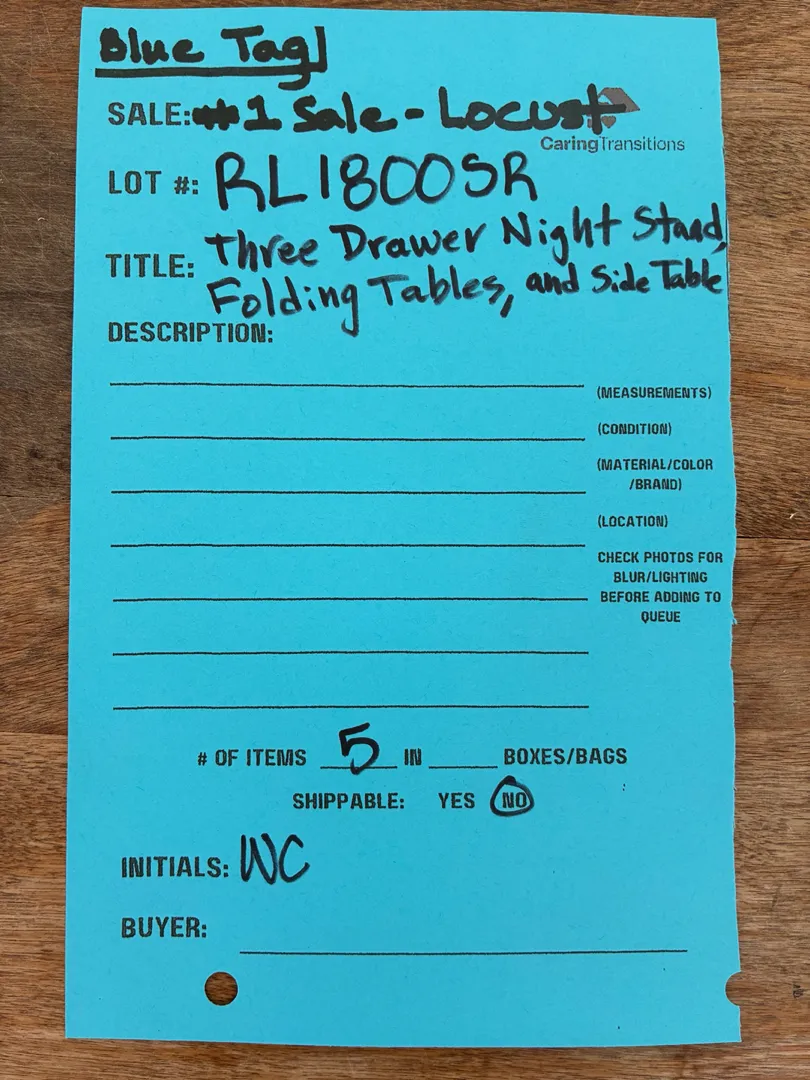 Blue Tag
SALE: #1 Sale - Locust
CaringTransitions
LOT #: RL1800SR
TITLE: Three Drawer Night Stand,
Folding Tables, and Side Table
DESCRIPTION:
(MEASUREMENTS)
(CONDITION)
(MATERIAL/COLOR
/BRAND)
(LOCATION)
CHECK PHOTOS FOR
BLUR/LIGHTING
BEFORE ADDING TO
QUEUE
# OF ITEMS 5 IN ____ BOXES/BAGS
SHIPPABLE: YES NO
INITIALS: WC
BUYER: